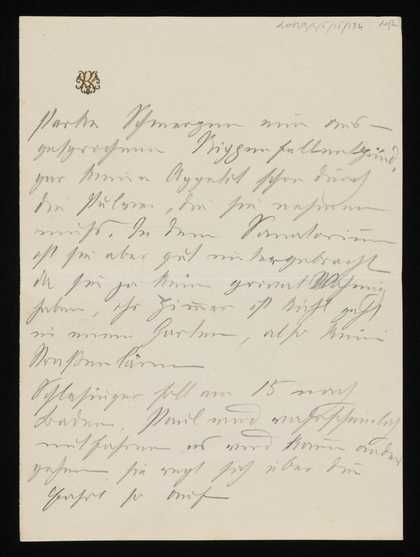 starke Schmerzen eine aus-
gesprochene Rippenfellentzünd,
gar keinen Appetit schon durch
die Pulver, die sie nehmen
muß. In dem Sanatorium
ist sie aber gut untergebracht
da sie ja keine privat Wohnung
haben, ihr Zimmer ist licht geht
in einen Garten, also kein
Straßenlärm
Schlesinger soll am 15 nach
Baden. Paul wird wahrscheinlich
mitfahren es wird kaum anders
gehen sie regt sich über die
Fahrt so auf